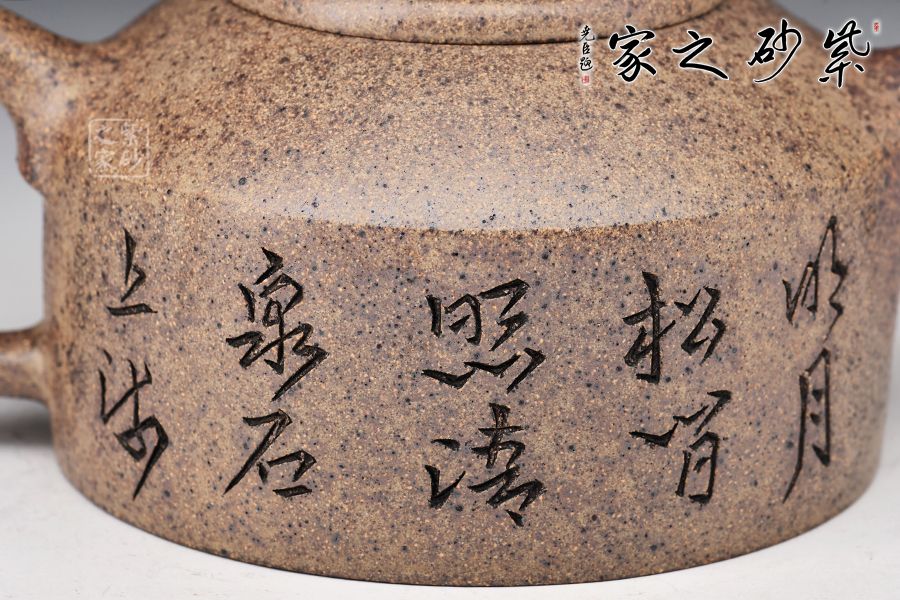 紫砂之家
尧臣题
紫砂之家
明月
松间
照清
泉石
上流